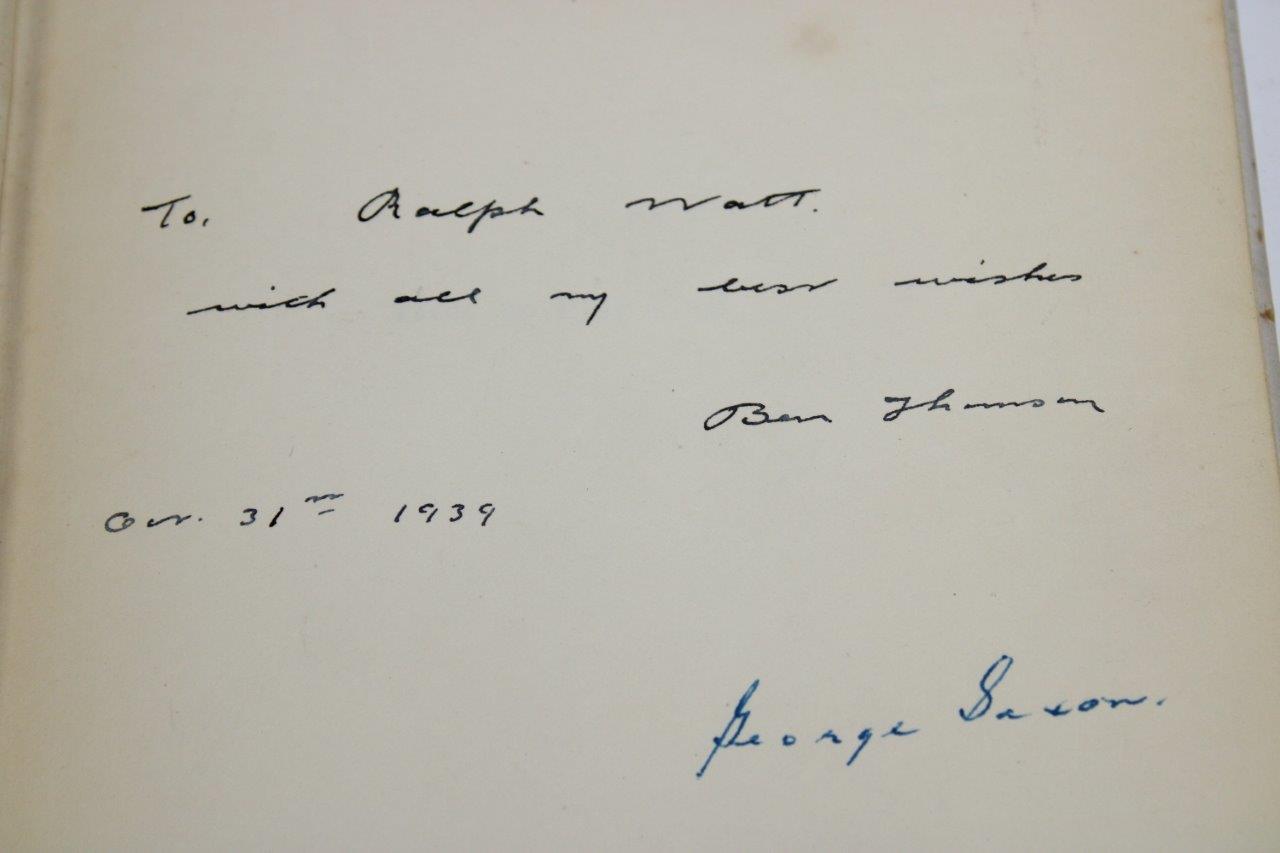 To, Ralph Watt.
with all my best wishes
Ben Thomson
Oct. 31st 1939
George Saxon.